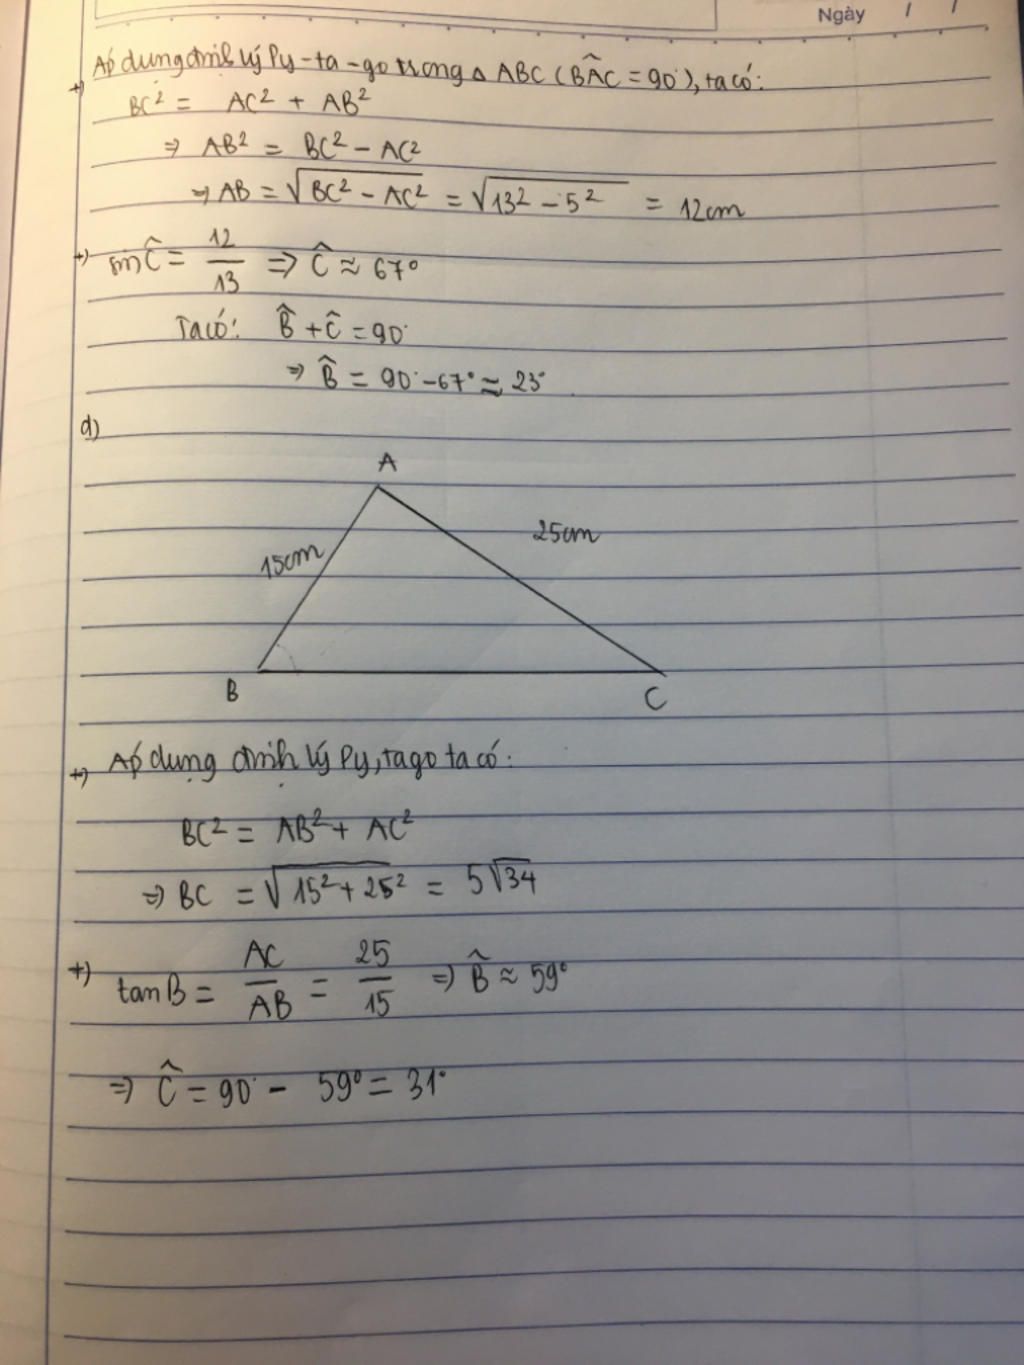 Ngày / /
Áp dụng định lý Py-ta-go trong △ ABC (BÂC = 90°), ta có:
+) BC² = AC² + AB²
⇒ AB² = BC² - AC²
⇒ AB = √(BC² - AC²) = √(13² - 5²) = 12cm
+) sin Ĉ = 12/13 ⇒ Ĉ ≈ 67°
Ta có: B̂ + Ĉ = 90°
⇒ B̂ = 90° - 67° ≈ 23°
d)
A
15cm
25cm
B
C
+) Áp dụng định lý Py, ta go ta có:
BC² = AB² + AC²
⇒ BC = √(15² + 25²) = 5√34
+) tan B = AC/AB = 25/15 ⇒ B̂ ≈ 59°
⇒ Ĉ = 90° - 59° = 31°